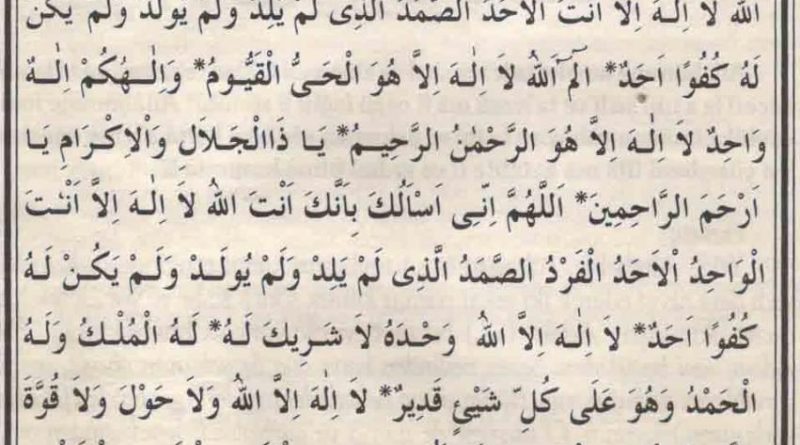 اللهُ لَا اِلٰهَ اِلَّا اَنْتَ الْاَحَدُ الصَّمَدُ الَّذِى لَمْ يَلِدْ وَلَمْ يُولَدْ وَلَمْ يَكُنْ
لَهُ كُفُوًا اَحَدٌ* الٓمٓ اَللهُ لَا اِلٰهَ اِلَّا هُوَ الْحَىُّ الْقَيُّومُ* وَاِلٰهُكُمْ اِلٰهٌ
وَاحِدٌ لَا اِلٰهَ اِلَّا هُوَ الرَّحْمٰنُ الرَّحِيمِ* يَا ذَاالْجَلَالِ وَالْاِكْرَامِ يَا
اَرْحَمَ الرَّاحِمِينَ* اَللّٰهُمَّ اِنِّى اَسْاَلُكَ بِاَنَّكَ اَنْتَ اللهُ لَا اِلٰهَ اِلَّا اَنْتَ
الْوَاحِدُ الْاَحَدُ الْفَرْدُ الصَّمَدُ الَّذِى لَمْ يَلِدْ وَلَمْ يُولَدْ وَلَمْ يَكُنْ لَهُ
كُفُوًا اَحَدٌ* لَا اِلٰهَ اِلَّا اللهُ وَحْدَهُ لَا شَرِيكَ لَهُ* لَهُ الْمُلْكُ وَلَهُ
الْحَمْدُ وَهُوَ عَلَى كُلِّ شَيْئٍ قَدِيرٌ* لَا اِلهَ اِلَّا اللهُ وَلَا حَوْلَ وَلَا قُوَّةَ